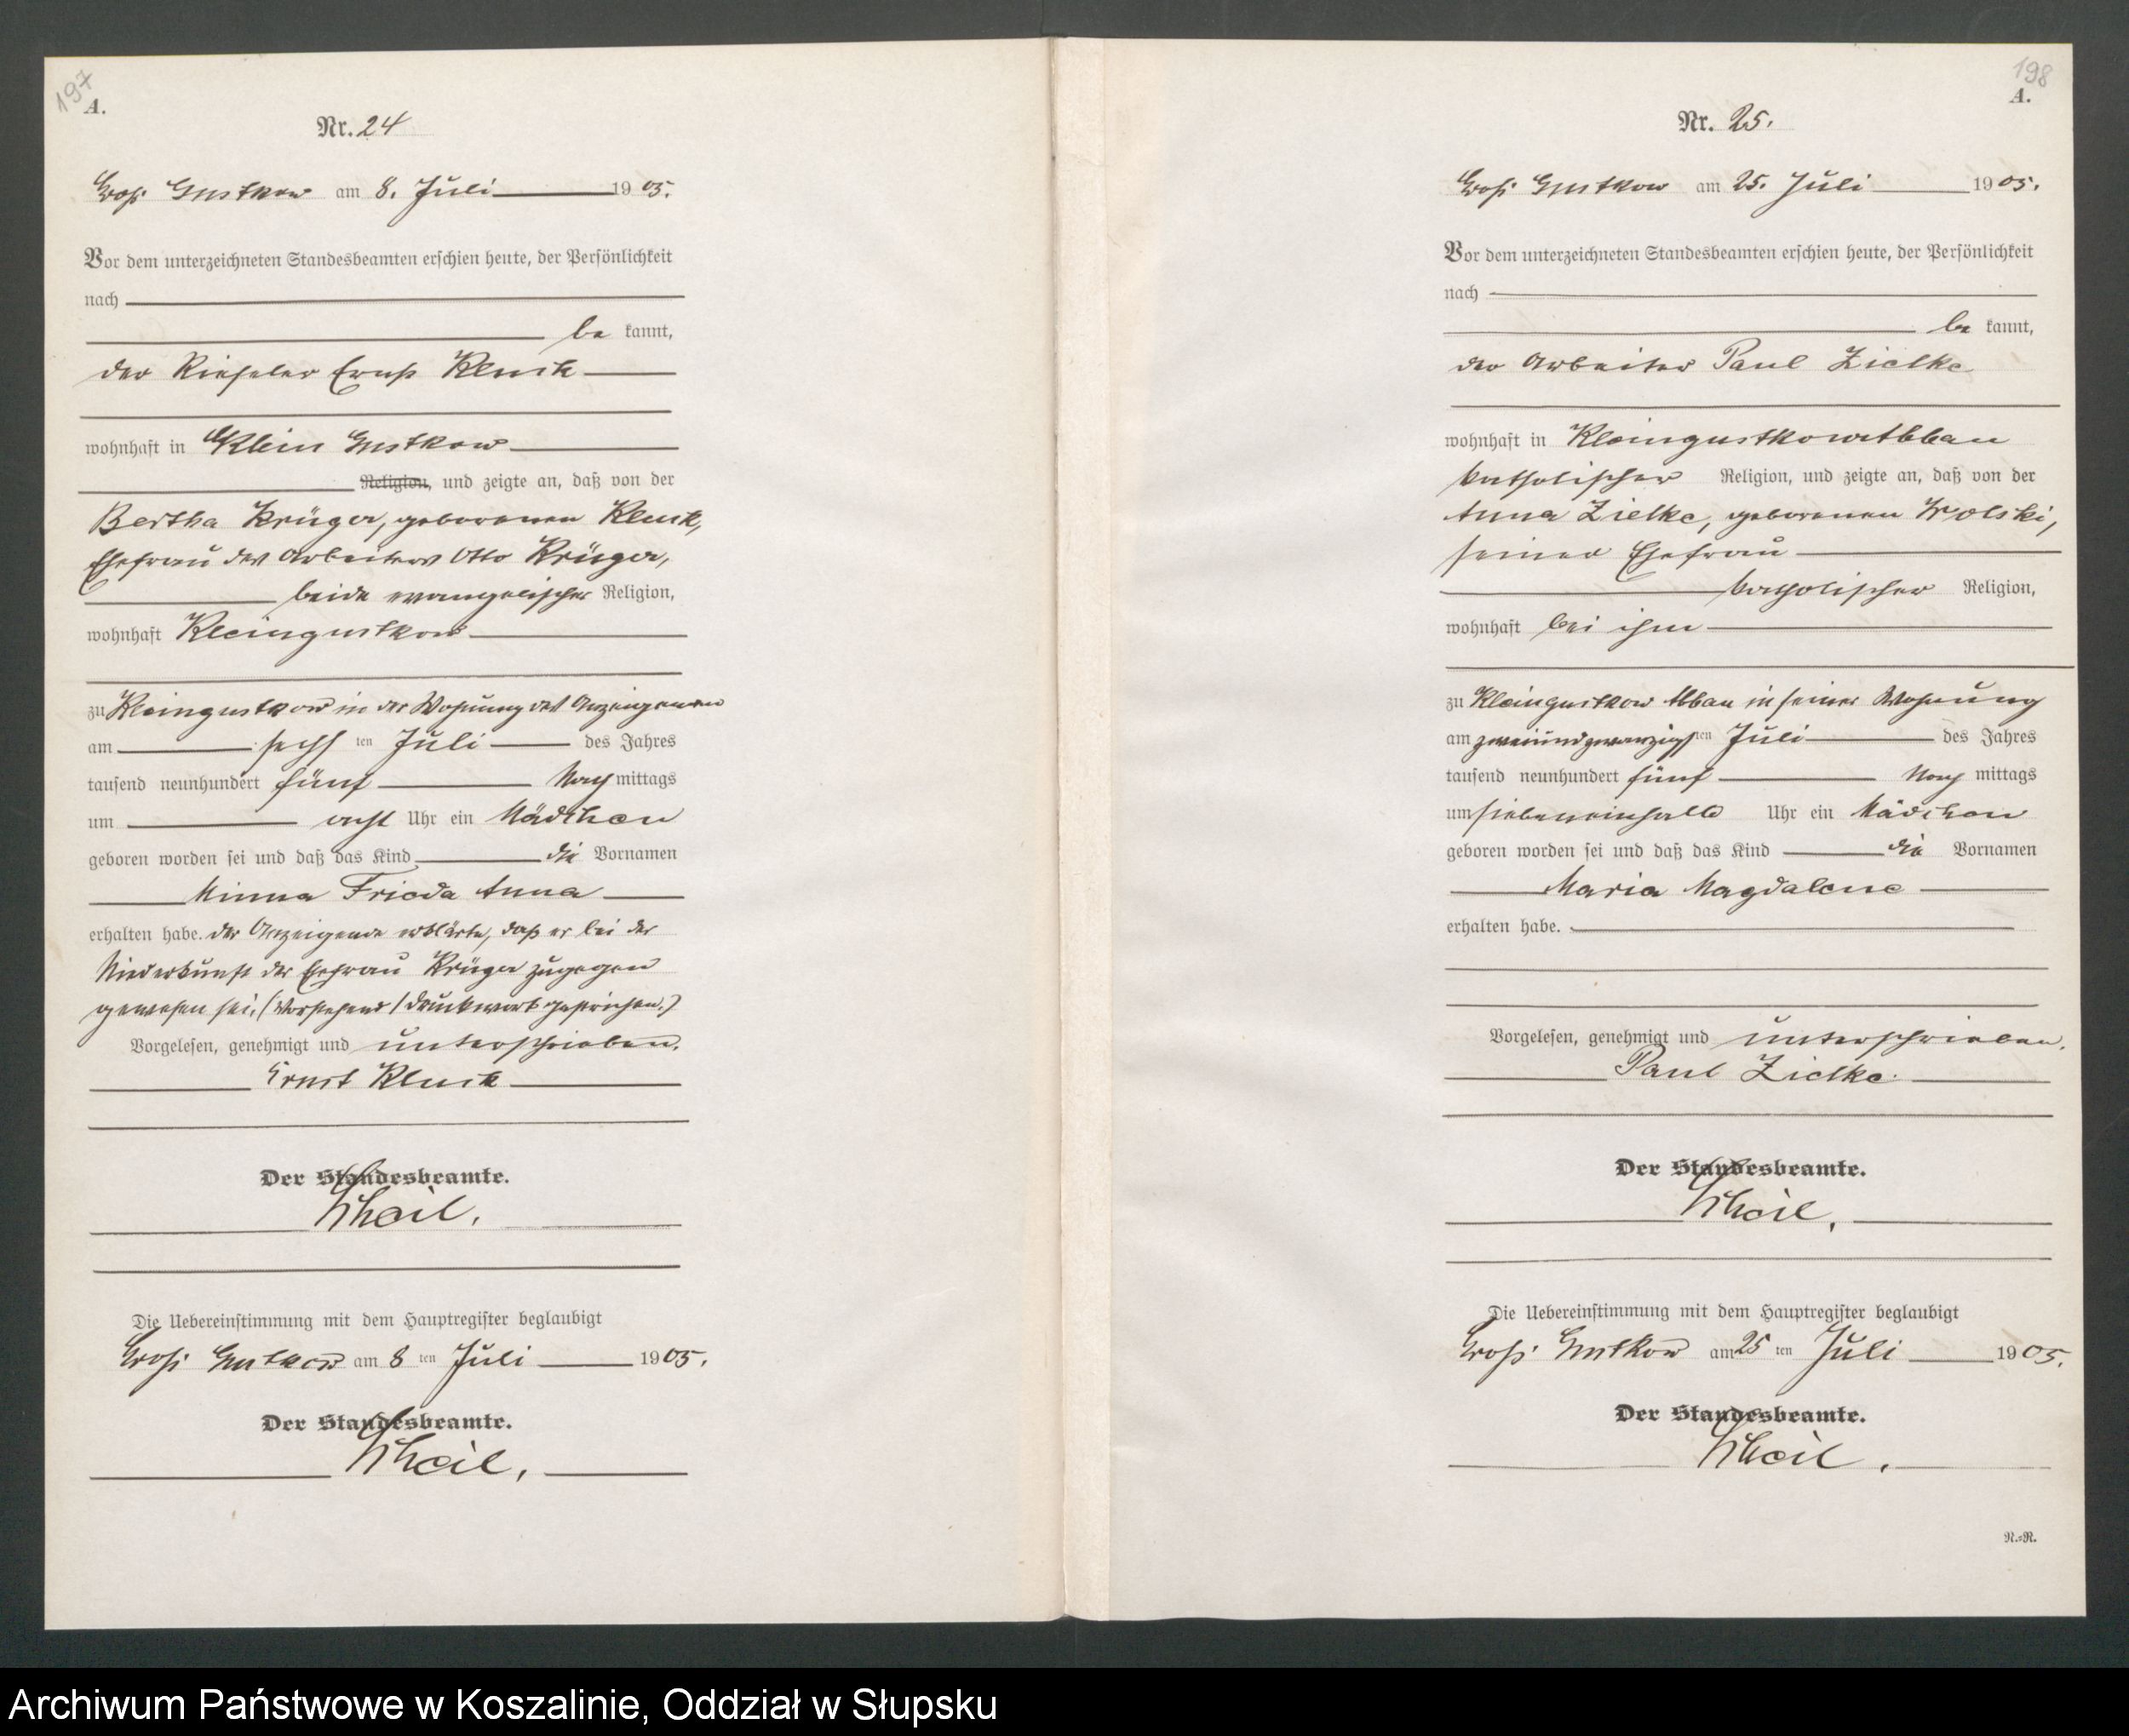 197
A.
Nr. 24
Groß Gustkow am 8. Juli 1905.
Vor dem unterzeichneten Standesbeamten erschien heute, der Persönlichkeit
nach
be kannt,
der Rieseler Ernst Kluck
wohnhaft in Klein Gustkow
Religion, und zeigte an, daß von der
Bertha Krüger, geborenen Kluck,
Ehefrau des Arbeiters Otto Krüger,
beide evangelischer Religion,
wohnhaft Kleingustkow
zu Kleingustkow in der Wohnung des Anzeigenden
am sechsten Juli des Jahres
tausend neunhundert fünf Nachmittags
um acht Uhr ein Mädchen
geboren worden sei und daß das Kind die Vornamen
Minna Frieda Anna
erhalten habe. Der Anzeigende erklärte, daß er bei der
Niederkunft der Ehefrau Krüger zugegen
gewesen sei. (Vorstehend 1 Druckwort gestrichen.)
Vorgelesen, genehmigt und unterschrieben.
Ernst Kluck
Der Standesbeamte.
Scheil.
Die Uebereinstimmung mit dem Hauptregister beglaubigt
Groß Gustkow am 8 ten Juli 1905.
Der Standesbeamte.
Scheil.
198
A.
Nr. 25.
Groß Gustkow am 25. Juli 1905.
Vor dem unterzeichneten Standesbeamten erschien heute, der Persönlichkeit
nach
be kannt,
der Arbeiter Paul Zielke
wohnhaft in Kleingustkow Abbau
katholischer Religion, und zeigte an, daß von der
Anna Zielke, geborenen Wolski,
seiner Ehefrau
katholischer Religion,
wohnhaft bei ihm
zu Kleingustkow Abbau in seiner Wohnung
am zweiundzwanzigsten Juli des Jahres
tausend neunhundert fünf Nachmittags
um siebeneinhalb Uhr ein Mädchen
geboren worden sei und daß das Kind die Vornamen
Maria Magdalene
erhalten habe.
Vorgelesen, genehmigt und unterschrieben.
Paul Zielke.
Der Standesbeamte.
Scheil.
Die Uebereinstimmung mit dem Hauptregister beglaubigt
Groß Gustkow am 25 ten Juli 1905.
Der Standesbeamte.
Scheil.
N.=N.
Archiwum Państwowe w Koszalinie, Oddział w Słupsku